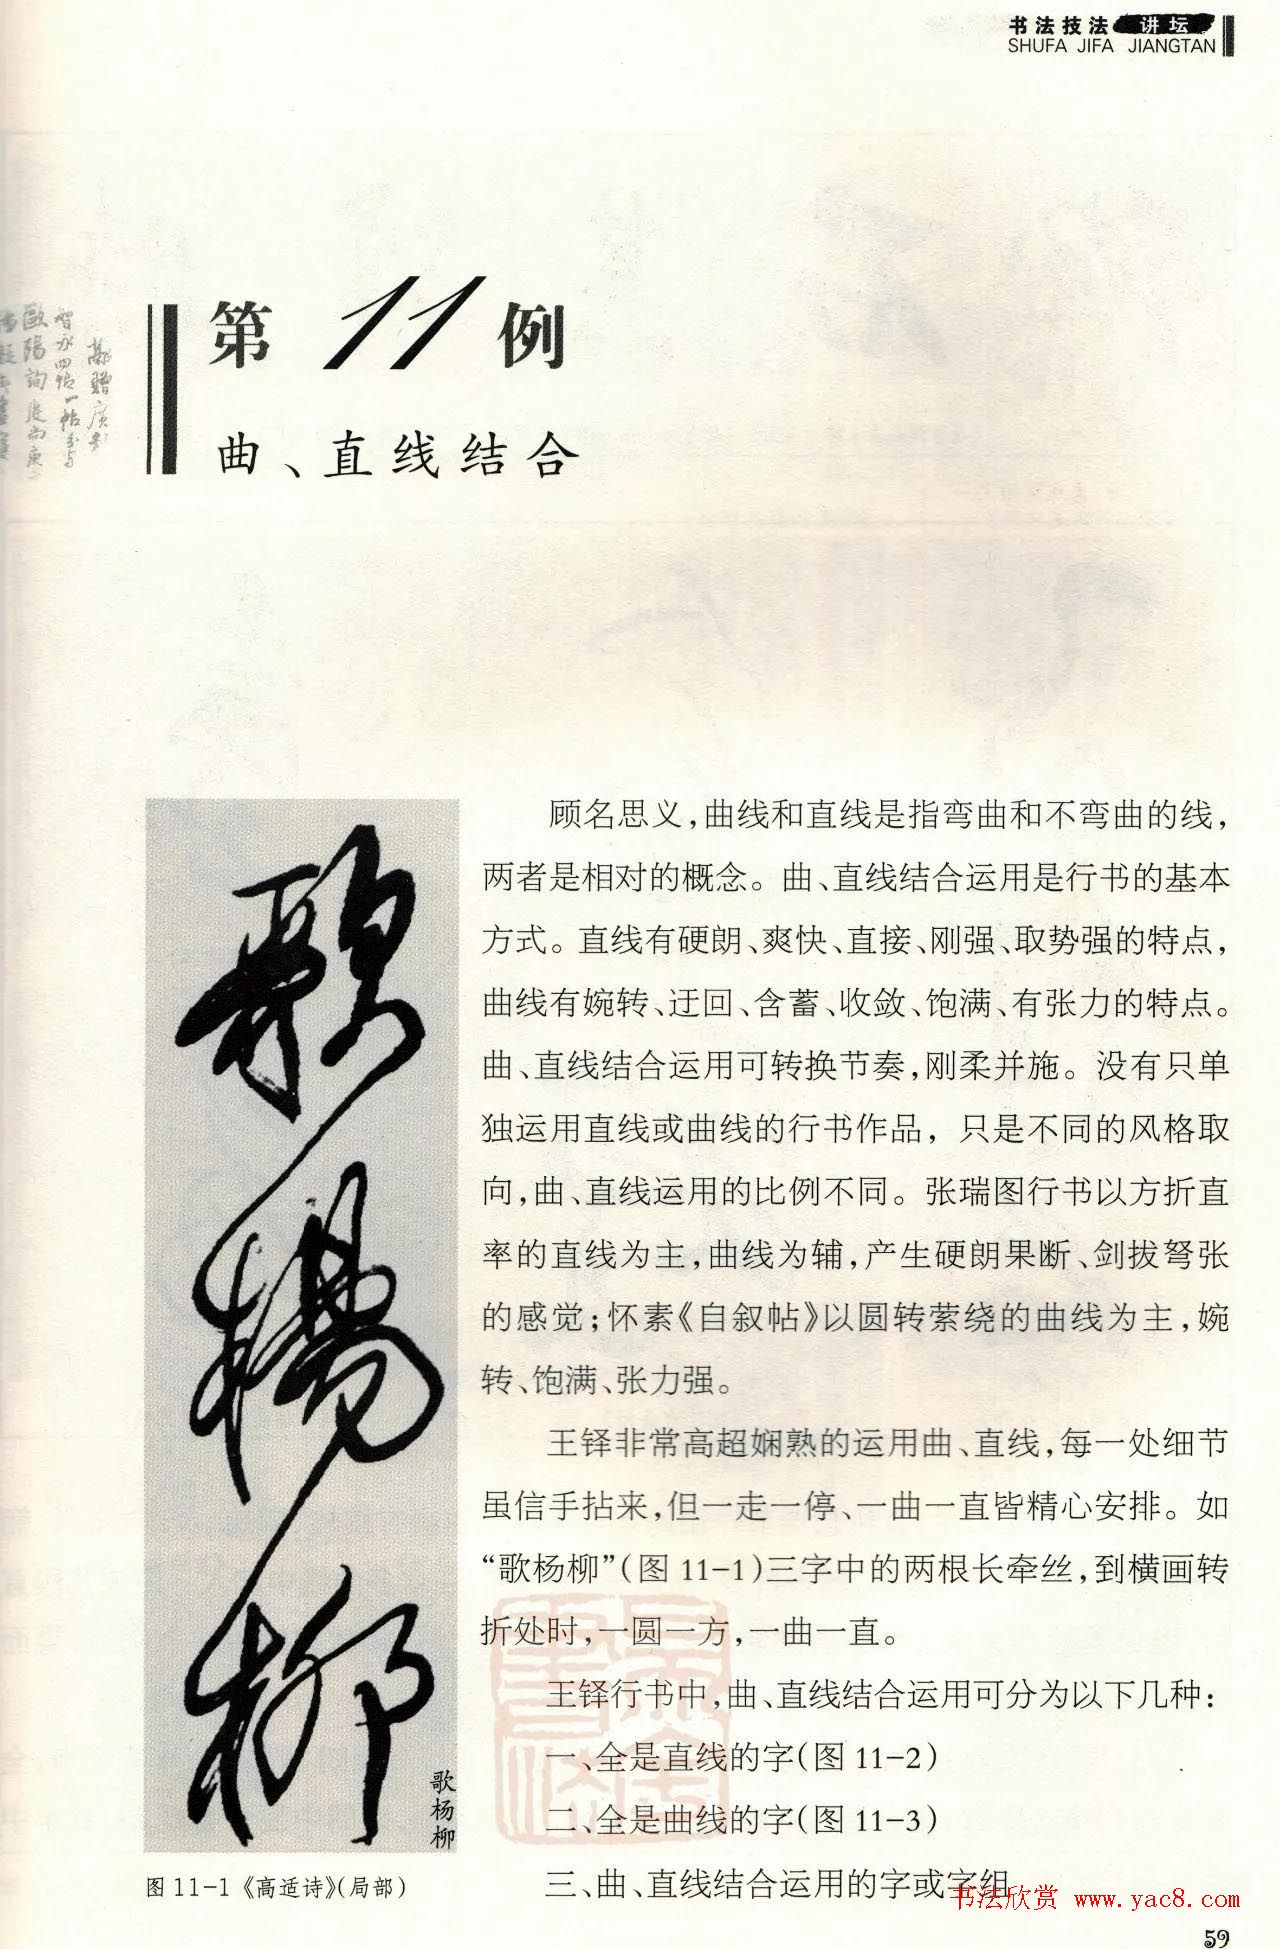 书法技法 讲坛
SHUFA JIFA JIANGTAN
第11例
曲、直线结合
顾名思义，曲线和直线是指弯曲和不弯曲的线，
两者是相对的概念。曲、直线结合运用是行书的基本
方式。直线有硬朗、爽快、直接、刚强、取势强的特点，
曲线有婉转、迂回、含蓄、收敛、饱满、有张力的特点。
曲、直线结合运用可转换节奏，刚柔并施。没有只单
独运用直线或曲线的行书作品，只是不同的风格取
向，曲、直线运用的比例不同。张瑞图行书以方折直
率的直线为主，曲线为辅，产生硬朗果断、剑拔弩张
的感觉；怀素《自叙帖》以圆转萦绕的曲线为主，婉
转、饱满、张力强。
王铎非常高超娴熟的运用曲、直线，每一处细节
虽信手拈来，但一走一停、一曲一直皆精心安排。如
“歌杨柳”（图 11-1）三字中的两根长牵丝，到横画转
折处时，一圆一方，一曲一直。
王铎行书中，曲、直线结合运用可分为以下几种：
一、全是直线的字（图 11-2）
二、全是曲线的字（图 11-3）
三、曲、直线结合运用的字或字组
歌楊柳
歌杨柳
图 11-1《高适诗》（局部）
书法欣赏 www.yac8.com
59